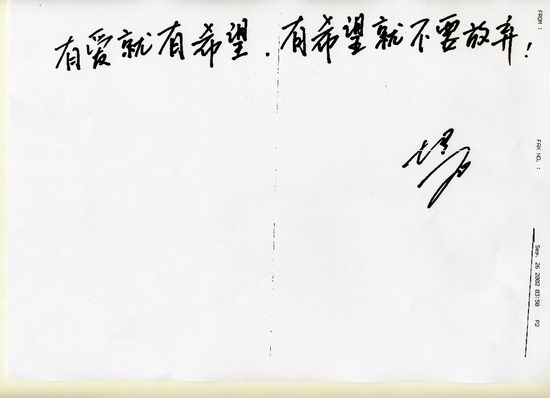 有爱就有希望．有希望就不要放弃！
FROM :
FAX NO. :
Sep. 26 2002 03:50 P2